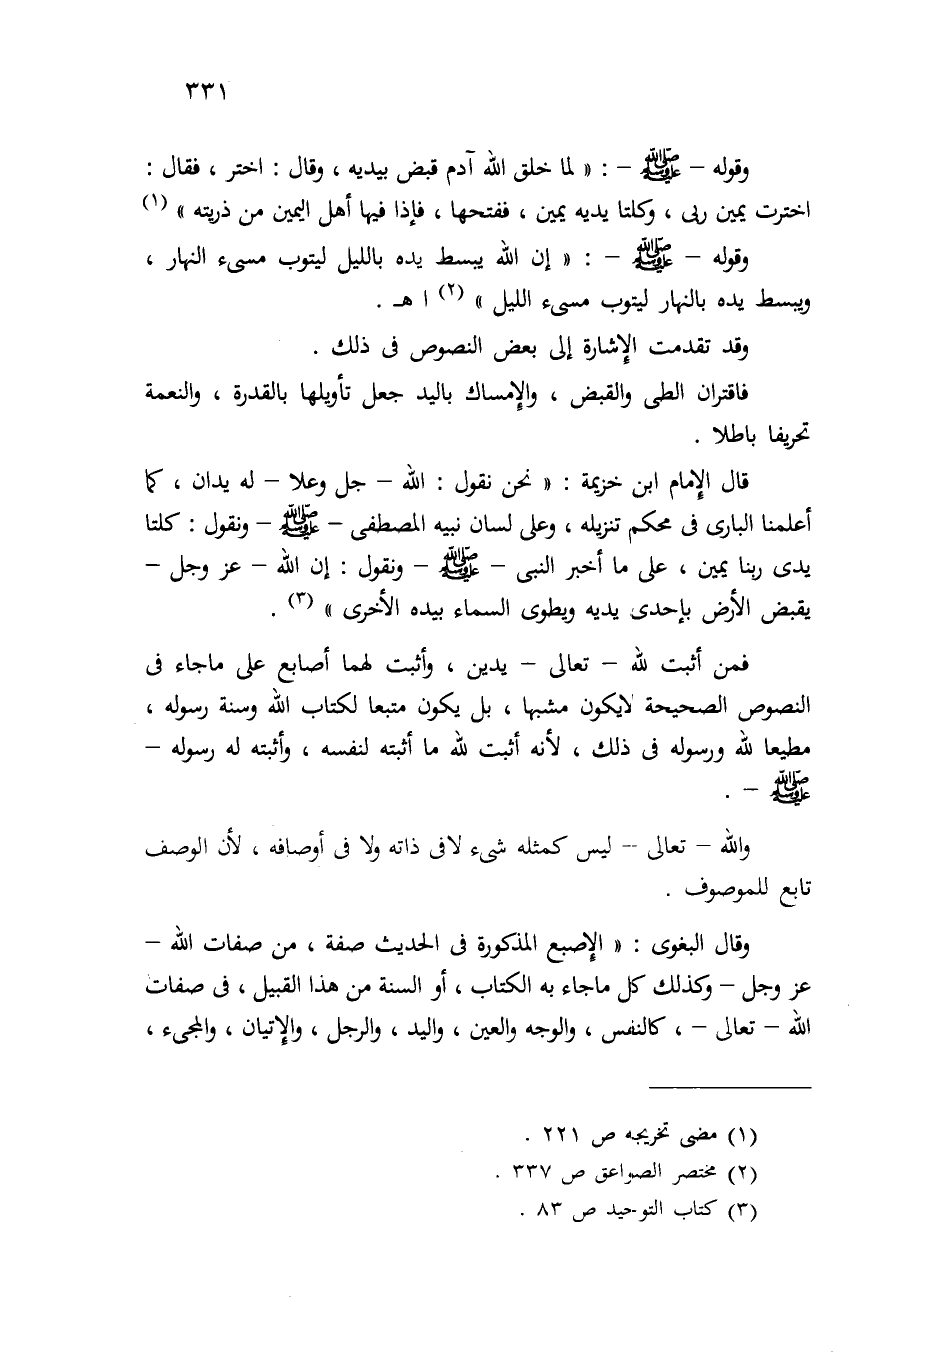 ٣٣١
وقوله – ﷺ – : « لما خلق الله آدم قبض بيديه ، وقال : اختر ، فقال :
اخترت يمين ربى ، وكلتا يديه يمين ، ففتحها ، فإذا فيها أهل اليمين من ذريته » (١)
وقوله – ﷺ – : « إن الله يبسط يده بالليل ليتوب مسىء النهار ،
ويبسط يده بالنهار ليتوب مسىء الليل » (٢) ا هـ .
وقد تقدمت الإشارة إلى بعض النصوص فى ذلك .
فاقتران الطى والقبض ، والإمساك باليد جعل تأويلها بالقدرة ، والنعمة
تحريفا باطلا .
قال الإمام ابن خزيمة : « نحن نقول : الله – جل وعلا – له يدان ، كما
أعلمنا البارى فى محكم تنزيله ، وعلى لسان نبيه المصطفى – ﷺ – ونقول : كلتا
يدى ربنا يمين ، على ما أخبر النبى – ﷺ – ونقول : إن الله – عز وجل –
يقبض الأرض بإحدى يديه ويطوى السماء بيده الأخرى » (٣) .
فمن أثبت لله – تعالى – يدين ، وأثبت لهما أصابع على ماجاء فى
النصوص الصحيحة لايكون مشبها ، بل يكون متبعا لكتاب الله وسنة رسوله ،
مطيعا لله ورسوله فى ذلك ، لأنه أثبت لله ما أثبته لنفسه ، وأثبته له رسوله –
ﷺ – .
والله – تعالى – ليس كمثله شىء لافى ذاته ولا فى أوصافه ، لأن الوصف
تابع للموصوف .
وقال البغوى : « الإصبع المذكورة فى الحديث صفة ، من صفات الله –
عز وجل – وكذلك كل ماجاء به الكتاب ، أو السنة من هذا القبيل ، فى صفات
الله – تعالى – ، كالنفس ، والوجه والعين ، واليد ، والرجل ، والإتيان ، والمجىء ،
(١) مضى تخريجه ص ٢٢١ .
(٢) مختصر الصواعق ص ٣٣٧ .
(٣) كتاب التوحيد ص ٨٣ .